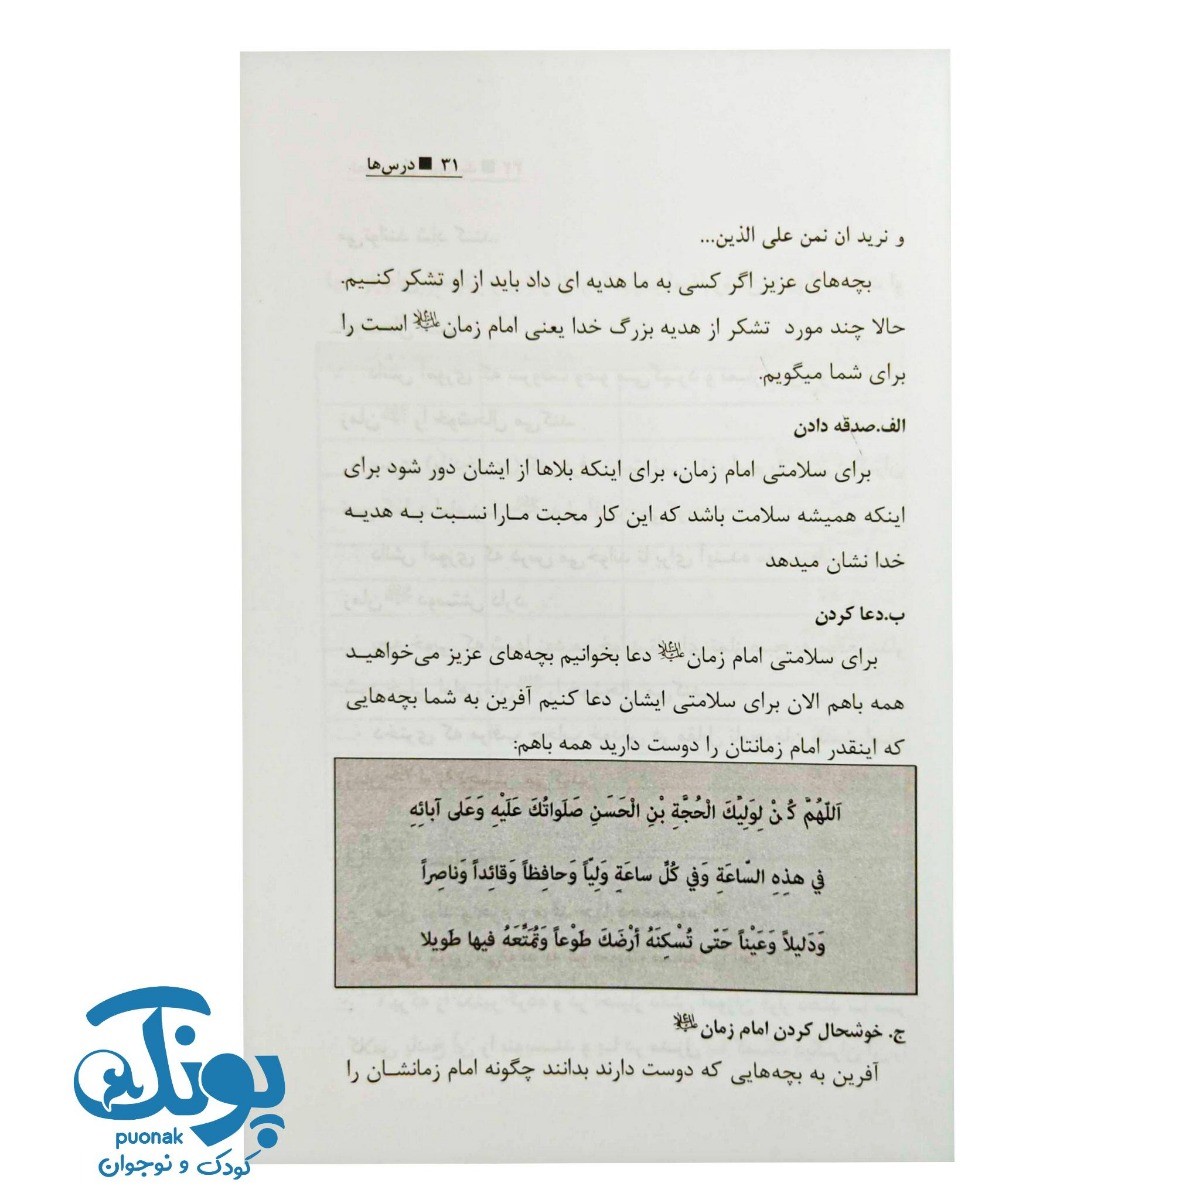 ۳۱ ■ درس‌ها
و نرید ان نمن علی الذین...
بچه‌های عزیز اگر کسی به ما هدیه ای داد باید از او تشکر کنیم.
حالا چند مورد تشکر از هدیه بزرگ خدا یعنی امام زمان علیه‌السلام است را
برای شما میگویم.
الف.صدقه دادن
برای سلامتی امام زمان، برای اینکه بلاها از ایشان دور شود برای
اینکه همیشه سلامت باشد که این کار محبت مارا نسبت به هدیه
خدا نشان میدهد
ب.دعا کردن
برای سلامتی امام زمان علیه‌السلام دعا بخوانیم بچه‌های عزیز می‌خواهید
همه باهم الان برای سلامتی ایشان دعا کنیم آفرین به شما بچه‌هایی
که اینقدر امام زمانتان را دوست دارید همه باهم:
اَللّهُمَّ كُنْ لِوَلِيِّكَ الْحُجَّةِ بْنِ الْحَسَنِ صَلَواتُكَ عَلَيْهِ وَعَلى آبائِهِ
في هذِهِ السّاعَةِ وَفي كُلِّ ساعَةٍ وَلِيّاً وَحافِظاً وَقائِداً وَناصِراً
وَدَليلاً وَعَيْناً حَتّى تُسْكِنَهُ أَرْضَكَ طَوْعاً وَتُمَتِّعَهُ فيها طَويلا
ج. خوشحال کردن امام زمان علیه‌السلام
آفرین به بچه‌هایی که دوست دارند بدانند چگونه امام زمانشان را
پونک
puonak
کودک و نوجوان